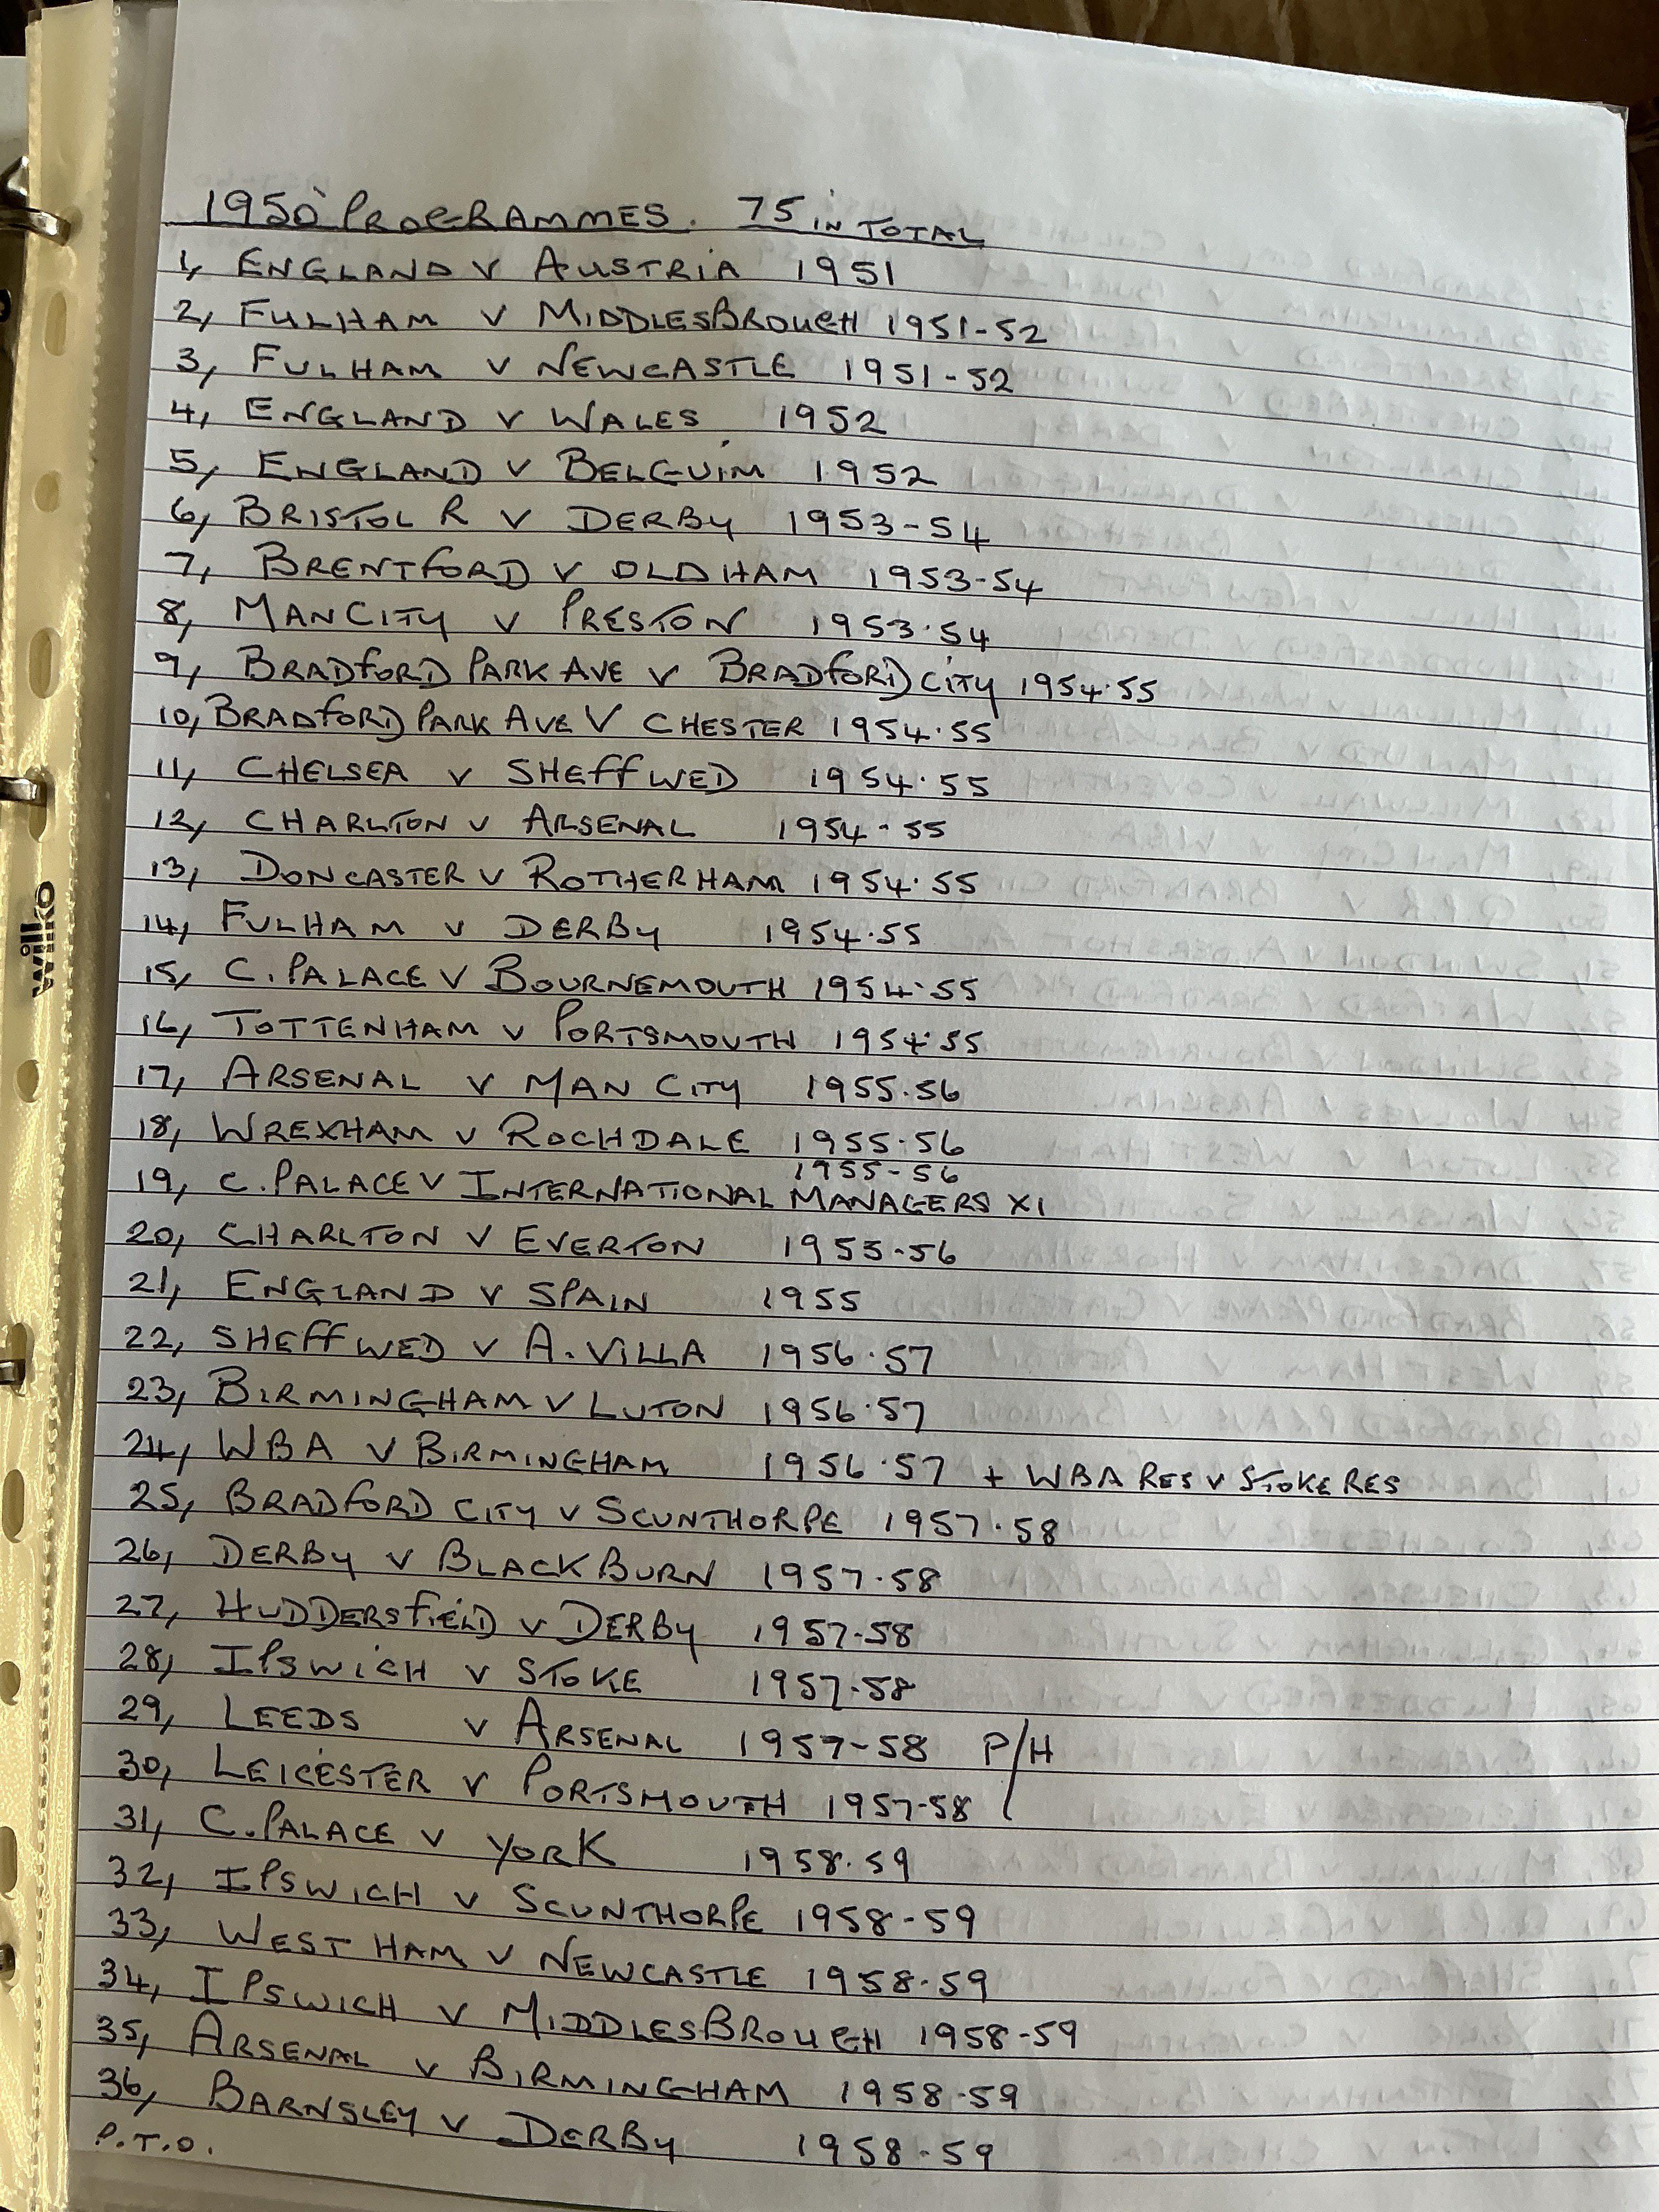 1950's PROGRAMMES. 75 IN TOTAL
1, ENGLAND V AUSTRIA 1951
2, FULHAM V MIDDLESBROUGH 1951-52
3, FULHAM V NEWCASTLE 1951-52
4, ENGLAND V WALES 1952
5, ENGLAND V BELGUIM 1952
6, BRISTOL R V DERBY 1953-54
7, BRENTFORD V OLDHAM 1953-54
8, MAN CITY V PRESTON 1953.54
9, BRADFORD PARK AVE V BRADFORD CITY 1954.55
10, BRADFORD PARK AVE V CHESTER 1954.55
11, CHELSEA V SHEFF WED 1954.55
12, CHARLTON V ARSENAL 1954-55
13, DONCASTER V ROTHERHAM 1954.55
14, FULHAM V DERBY 1954.55
15, C. PALACE V BOURNEMOUTH 1954.55
16, TOTTENHAM V PORTSMOUTH 1954.55
17, ARSENAL V MAN CITY 1955.56
18, WREXHAM V ROCHDALE 1955.56
1955-56
19, C. PALACE V INTERNATIONAL MANAGERS XI
20, CHARLTON V EVERTON 1955-56
21, ENGLAND V SPAIN 1955
22, SHEFF WED V A. VILLA 1956.57
23, BIRMINGHAM V LUTON 1956.57
24, WBA V BIRMINGHAM 1956.57 + WBA RES V STOKE RES
25, BRADFORD CITY V SCUNTHORPE 1957.58
26, DERBY V BLACKBURN 1957.58
27, HUDDERSFIELD V DERBY 1957-58
28, IPSWICH V STOKE 1957-58
29, LEEDS V ARSENAL 1957-58 P/H
30, LEICESTER V PORTSMOUTH 1957-58
31, C. PALACE V YORK 1958.59
32, IPSWICH V SCUNTHORPE 1958-59
33, WEST HAM V NEWCASTLE 1958-59
34, IPSWICH V MIDDLESBROUGH 1958-59
35, ARSENAL V BIRMINGHAM 1958-59
36, BARNSLEY V DERBY 1958-59
P.T.O.
wilko